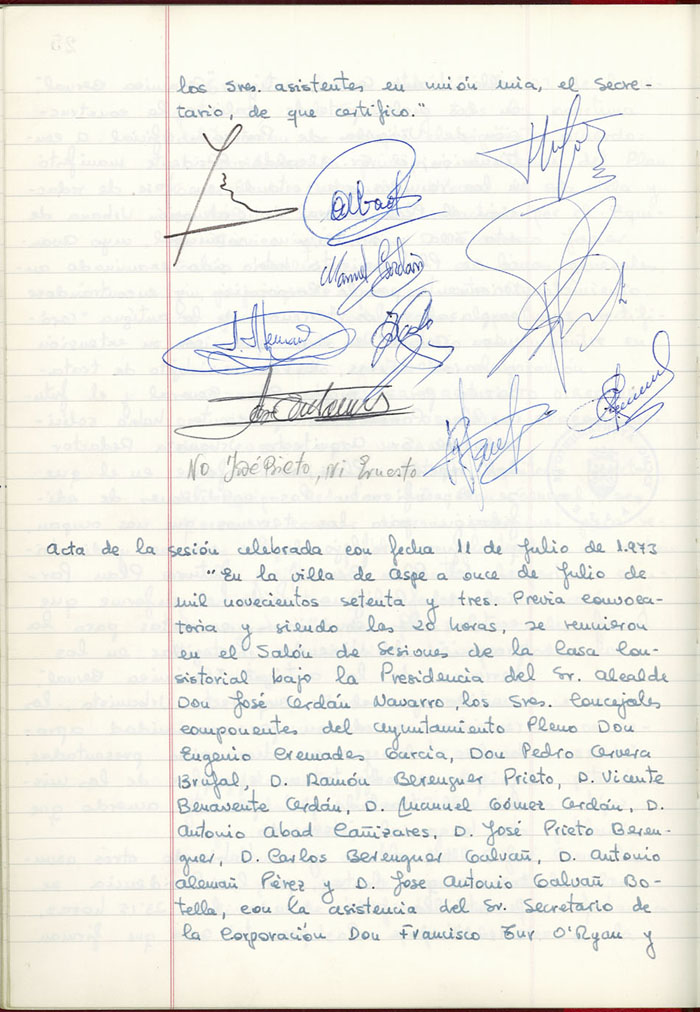 los Sres. asistentes en unión mia, el Secre-
tario, de que certifico."
Abad
Manuel Cerdán
José Antonio
No José Prieto, ni Ernesto
Acta de la sesión celebrada con fecha 11 de Julio de 1.973
"En la villa de Aspe a once de Julio de
mil novecientos setenta y tres. Previa convoca-
toria y siendo las 20 horas, se reunieron
en el Salón de Sesiones de la Casa Con-
sistorial bajo la Presidencia del Sr. Alcalde
Don José Cerdán Navarro, los Sres. Concejales
componentes del Ayuntamiento Pleno Don
Eugenio Cremades García, Don Pedro Cervera
Brufal, D. Ramón Berenguer Prieto, D. Vicente
Benavente Cerdán, D. Manuel Gómez Cerdán, D.
Antonio Abad Cañizares, D. José Prieto Beren-
guer, D. Carlos Berenguer Galvañ, D. Antonio
Alemañ Pérez y D. Jose Antonio Galvañ Bo-
tella, con la asistencia del Sr. Secretario de
la Corporación Don Francisco Tur O'Ryan y